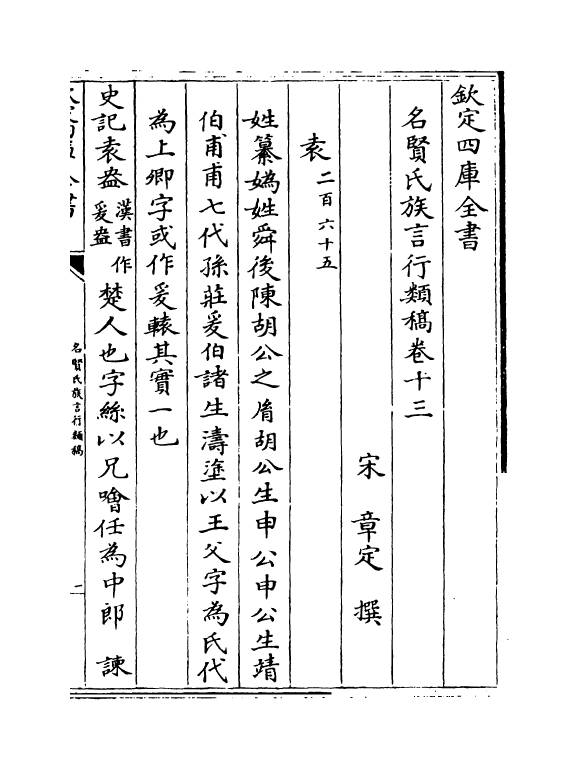 欽定四庫全書
名賢氏族言行類稿卷十三
宋 章定 撰
袁 二百六十五
姓纂媯姓舜後陳胡公之脣胡公生申公申公生靖
伯甫甫七代孫莊爰伯諸生濤塗以王父字為氏代
為上卿字或作爰轅其實一也
史記袁盎漢書作爰盎楚人也字絲以兄噲任為中郎 諫
名賢氏族言行類稿
一